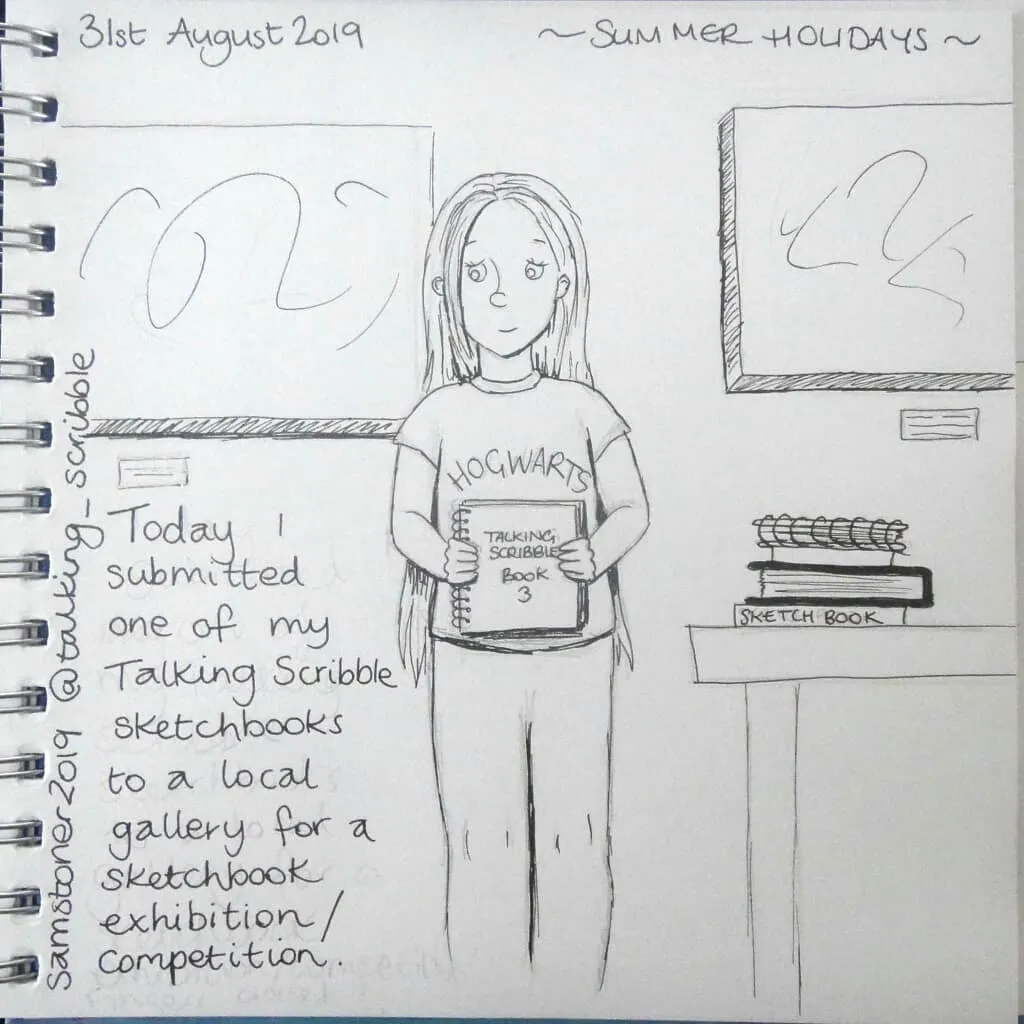 31st August 2019
~ SUMMER HOLIDAYS ~
HOGWARTS
TALKING
SCRIBBLE
BOOK
3
SKETCH BOOK
Today I
submitted
one of my
Talking Scribble
sketchbooks
to a local
gallery for a
sketchbook
exhibition/
competition.
Samstoner2019 @talking_scribble